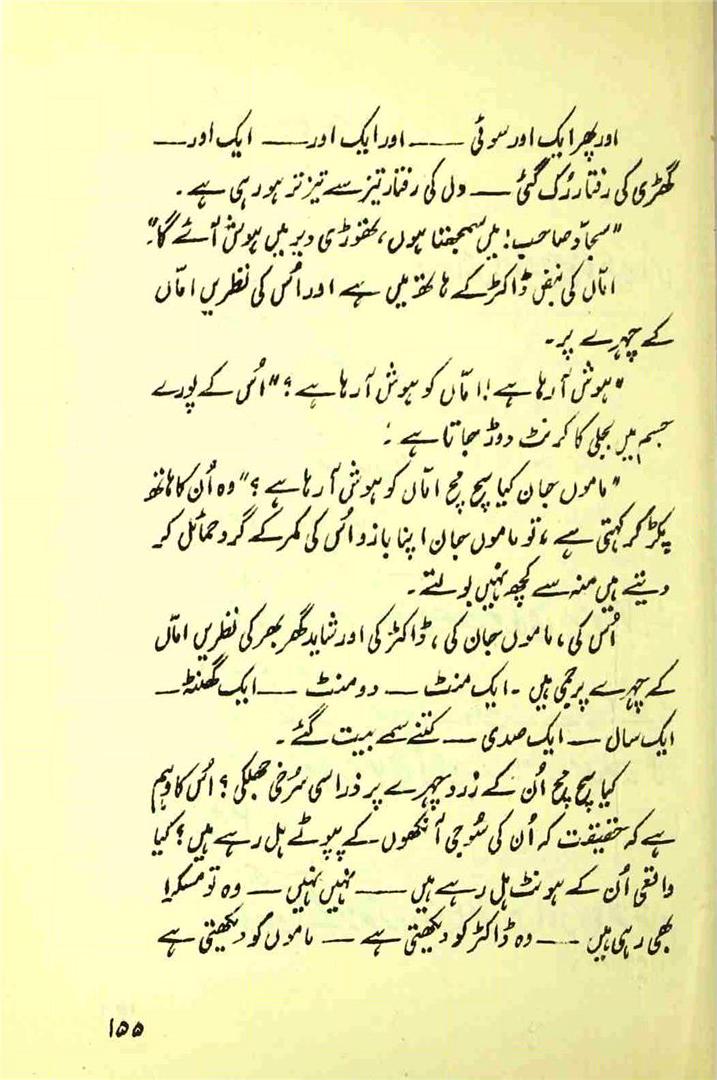 اور پھر ایک اور سوئی —— اور ایک اور —— ایک اور —
گھڑی کی رفتار رُک گئی — دل کی رفتار تیز سے تیز تر ہو رہی ہے ۔
"سجاد صاحب! میں سمجھتا ہوں، تھوڑی دیر میں ہوش آئے گا"۔
امّاں کی نبض ڈاکٹر کے ہاتھ میں ہے اور اُس کی نظریں امّاں
کے چہرے پر۔
"ہوش آ رہا ہے! امّاں کو ہوش آ رہا ہے؟" اُس کے پورے
جسم میں بجلی کا کرنٹ دوڑ جاتا ہے ۔
"ماموں جان کیا سچ مچ امّاں کو ہوش آ رہا ہے؟" وہ اُن کا ہاتھ
پکڑ کر کہتی ہے، تو ماموں جان اپنا بازو اُس کی کمر کے گرد حمائل کر
دیتے ہیں منہ سے کچھ نہیں بولتے۔
اُس کی، ماموں جان کی، ڈاکٹر کی اور شاید گھر بھر کی نظریں امّاں
کے چہرے پر جمی ہیں ۔ ایک منٹ — دو منٹ — ایک گھنٹہ —
ایک سال — ایک صدی — کتنے سمے بیت گئے ۔
کیا سچ مچ اُن کے زرد چہرے پر ذرا سی سُرخی جھلکی؟ اُس کا وہم
ہے کہ حقیقت کہ اُن کی سُوجی آنکھوں کے پپوٹے ہل رہے ہیں؟ کیا
واقعی اُن کے ہونٹ ہل رہے ہیں —— نہیں نہیں — وہ تو مسکرا
بھی رہی ہیں —— وہ ڈاکٹر کو دیکھتی ہے — ماموں کو دیکھتی ہے
۱۵۵